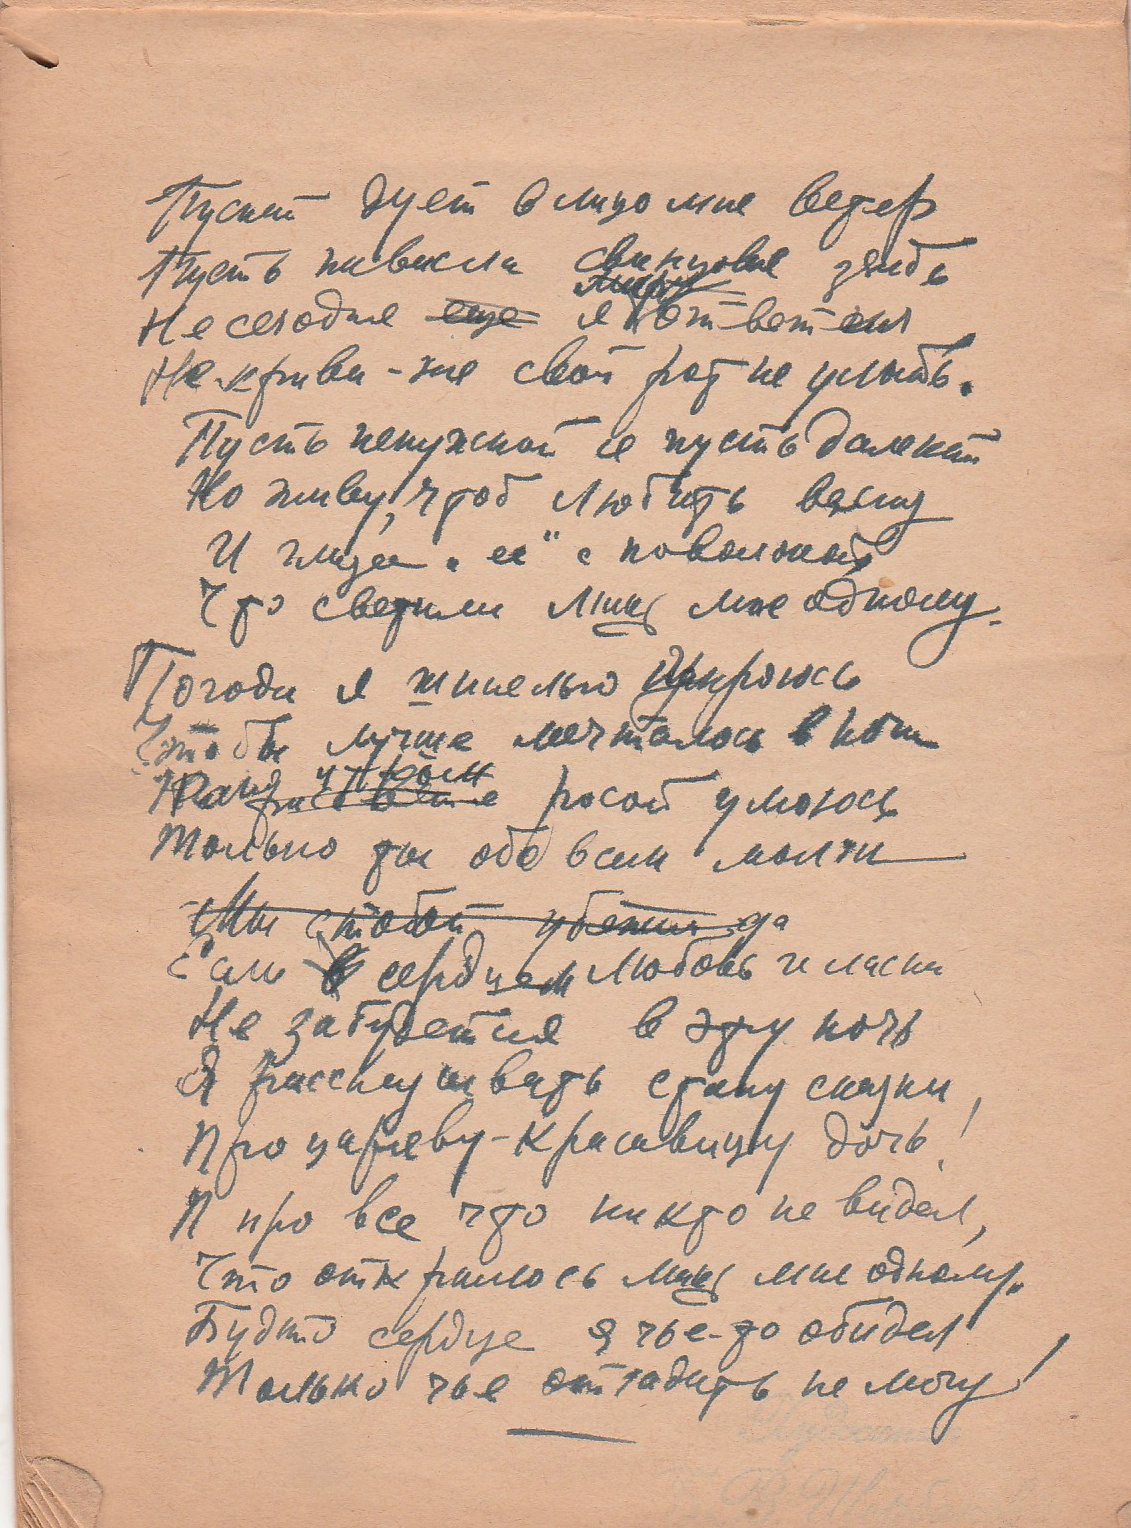 Пускай дует в лицо мне ветер
Пусть нависла свинцовая зябь
миру
Не сегодня еще я ответил
Не криви-же свой рот не улыбь.
Пусть ненужной и пусть далекой
Но живу, чтоб любить весну
И глаза „ее“ с поволокой
Что светили лишь мне одному.
Погоди я шинелью прикроюсь
Чтобы лучше мечталось в ночи
утром
Рано рассвете росой умоюсь
Только ты обо всем молчи
Мы с тобой убежим да
Если в сердцем любовь и ласки
Не забудется в эту ночь
Я рассказывать стану сказки,
Про цареву-красавицу дочь!
И про все что никто не видел,
Что открылось лишь мне одному.
Будто сердце я чье-то обидел
Только чье отгадать не могу!